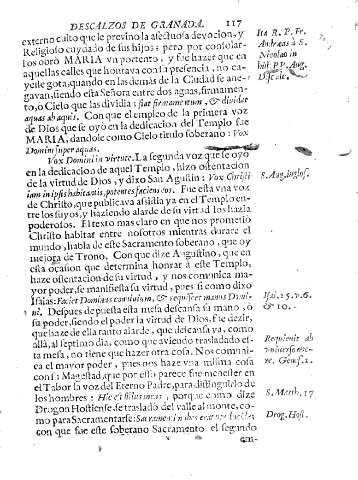 DESCALZOS DE GRANADA. 117
externo culto que le previno la afectuosa devocion, y
Religioso cuydado de sus hijos; pero por consolar-
los obrò MARIA un portento, y fue hazer que en
aquellas calles que honrava con su presencia, no ca-
yesse gota, quando en las demàs de la Ciudad se ane-
gavan, siendo esta Señora entre dos aguas, firmamen-
to, ò Cielo que las dividia: fiat firmamentum, & dividat
aquas ab aquis. Con que el empleo de la primera voz
de Dios que se oyò en la dedicacion del Templo fue
MARIA, dandole como Cielo titulo soberano: Vox
Domini super aquas.
Vox Domini in virtute. La segunda voz que se oyò
en la dedicacion de aquel Templo, hizo ostentacion
de la virtud de Dios, y dixo San Agustin: Vox Christi
iam in ipsis habitantis, potentes faciens eos. Fue esta voz
de Christo, que publicava assistia ya en el Templo en-
tre los suyos, y haziendo alarde de su virtud los hazia
poderosos. El texto mas claro en que nos prometiò
Christo habitar entre nosotros mientras durare el
mundo, habla de este Sacramento soberano, que oy
mejora de Trono. Con que dize Augustino, que en
esta ocasion que determina honrar à este Templo,
haze ostentacion de su virtud, y nos comunica ma-
yor poder, se manifiesta su virtud, pues si como dixo
Isaias: Faciet Dominus convivium, & requiescet manus Domi-
ni. Despues de puesta esta mesa descansa su mano, ò
su poder, siendo el poder la virtud de Dios, fue dezir,
que haze de ella tanto alarde, que descansa ya, como
allà, al septimo dia, como que aviendo trasladado es-
ta mesa, no tiene que hazer otra cosa. Nos comuni-
ca el mayor poder, pues nos haze vna misma cosa
con su Magestad, que por esso parece fue menester en
el Tabor la voz del Eterno Padre, para distinguirlo de
los hombres: Hic est filius meus, porque como dize
Drogon Hostiense, se trasladò del valle al monte, co-
mo para Sacramentarse:
con que fue este soberano Sacramento el segundo
em-
Ita R. P. Fr.
Andreas à S.
Nicolao in
hist. PP. Aug.
Discalc.
S. Aug. in ghos.
Isai. 25. v. 6.
& 10.
Requievit ab
universo ope-
re. Genes. 1.
S. Matth. 17
Drog. Host.